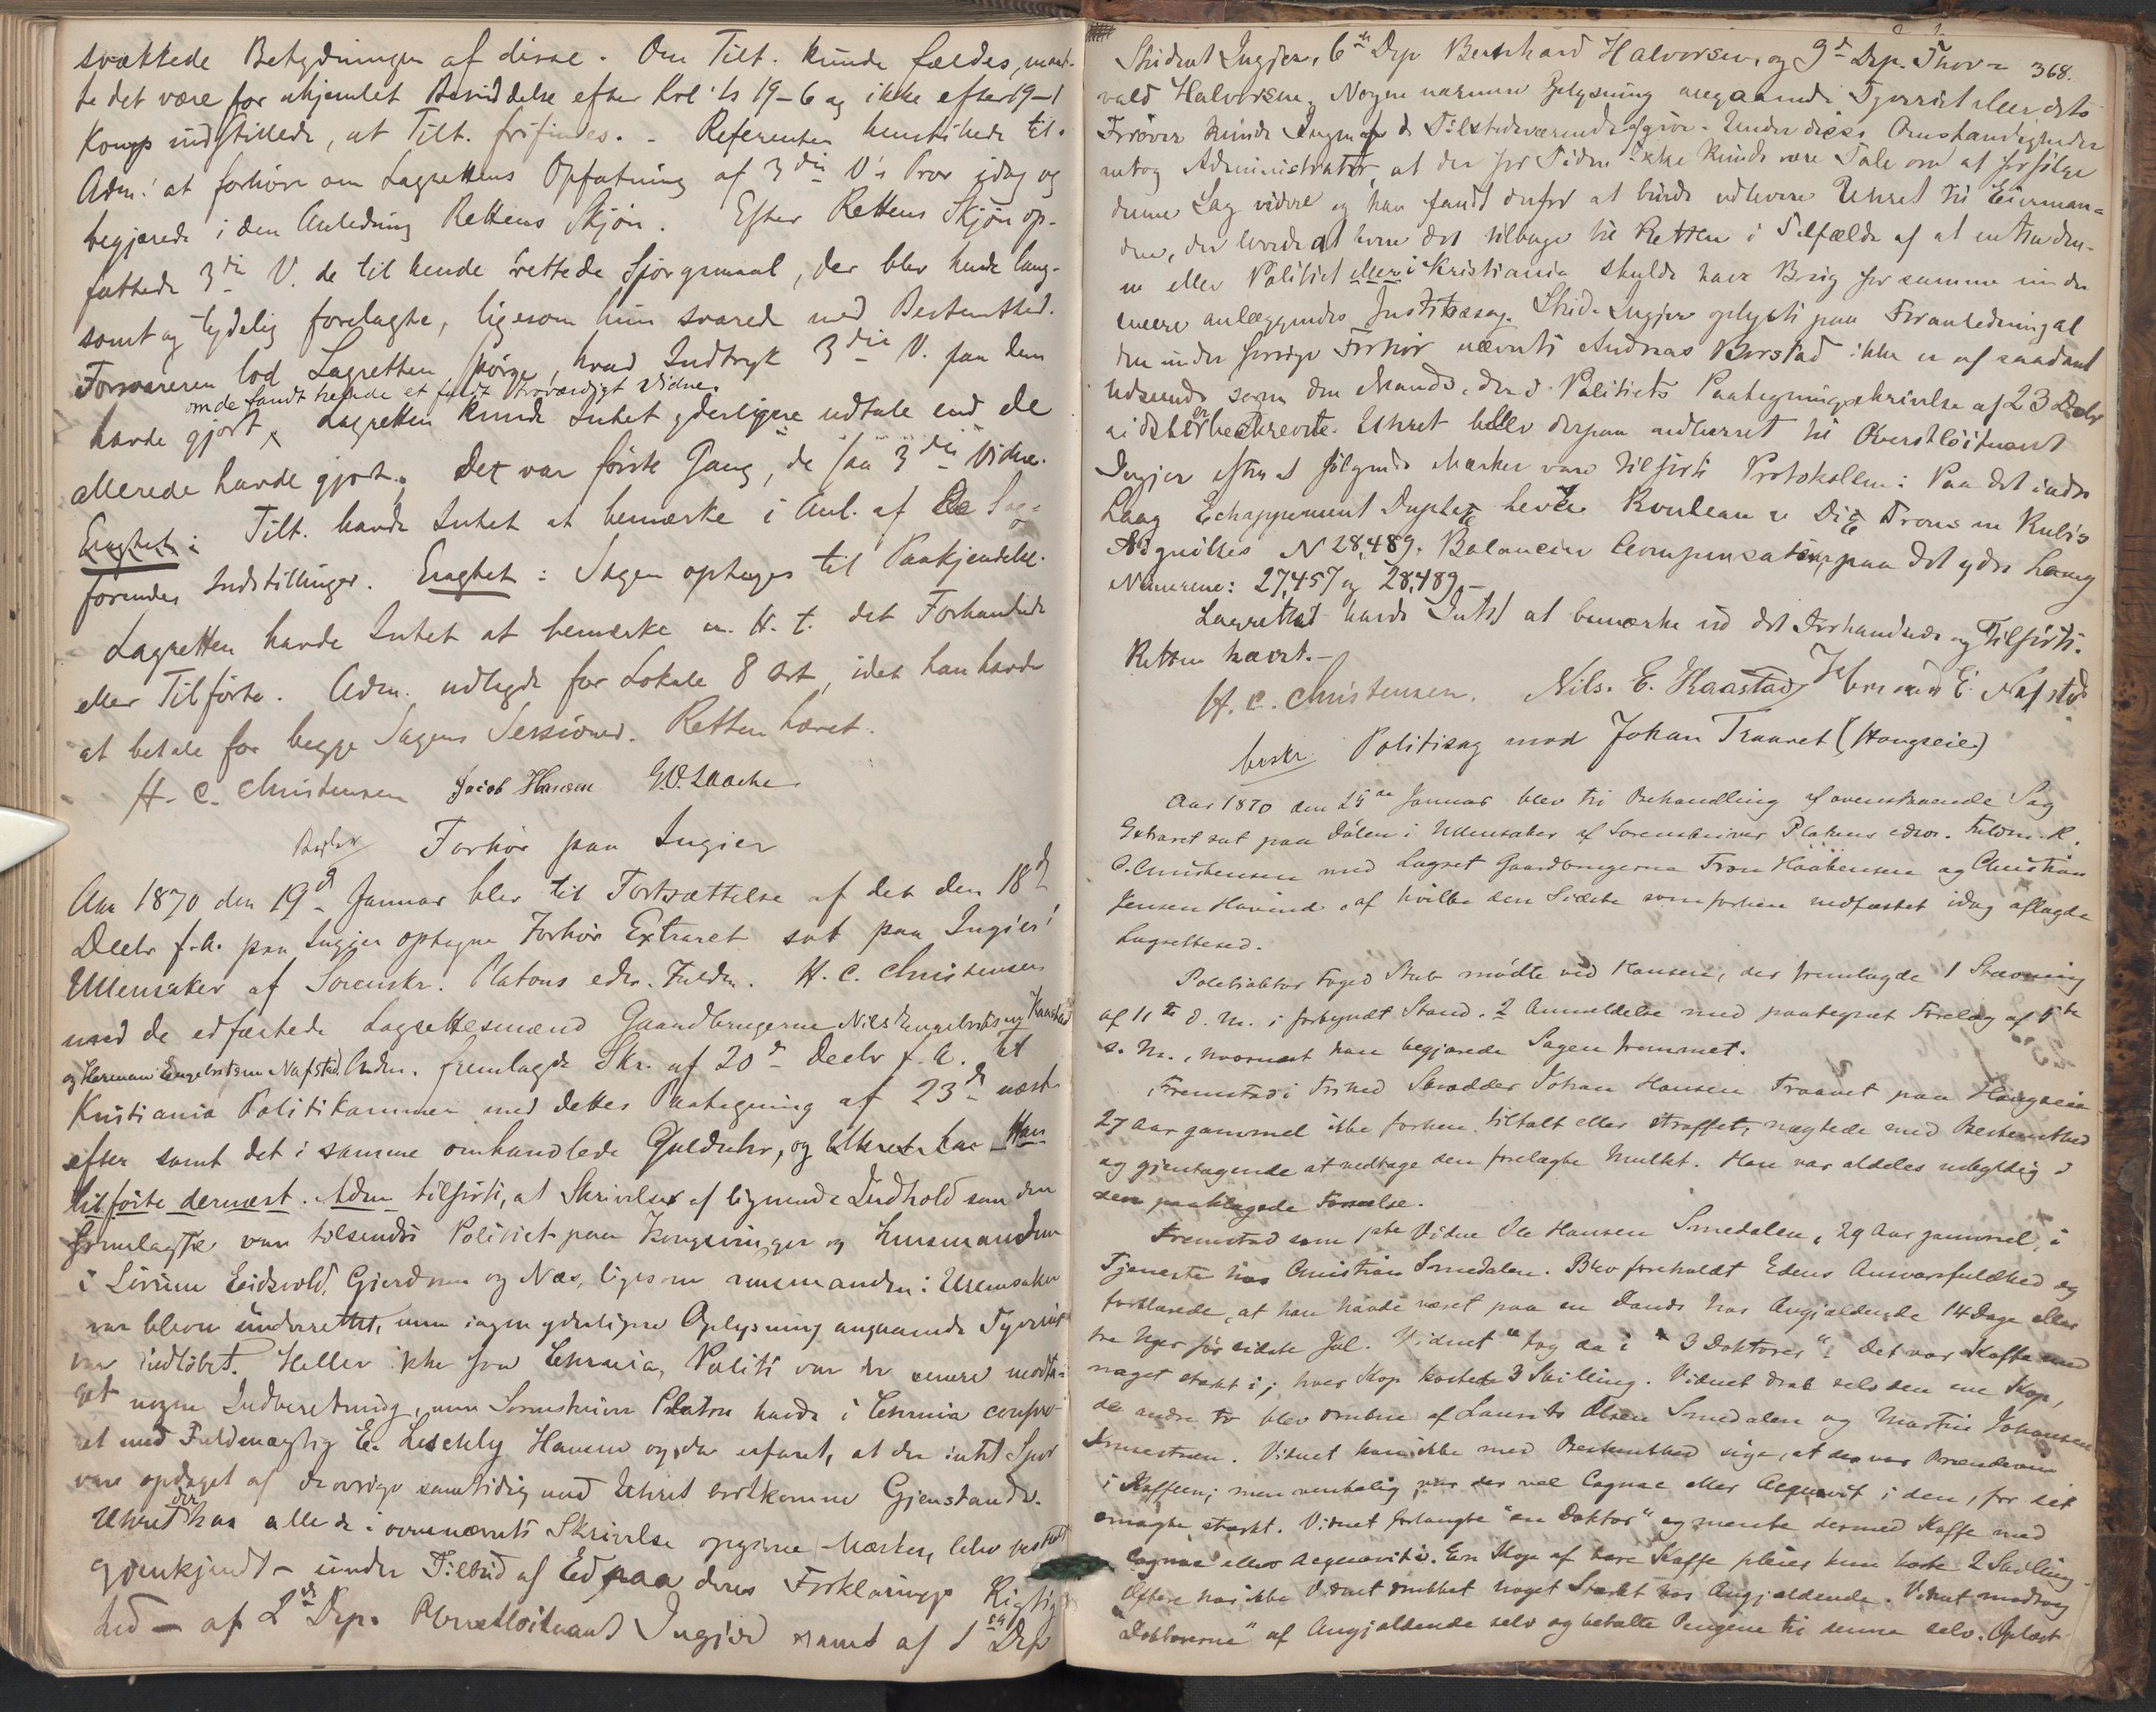 svækkede Betydningen af disse. Om Tilt. kunde fældes, maat-
te det være for uhjemlet Besiddelse efter Krl's 19-6 og ikke efter 19-1
Konge indstillede, at Tilt. frifindes. - Referenten henstillede til
Adm. at forhøre om Lagrettens Opfatning af 3die V's Prov idag og
begjærede i den Anledning Rettens Skjøn. Efter Rettens Skjøn op-
fattede 3die V. de til hende rettede Spørgsmaal, der blev hende lang-
somt og tydelig forelagte, ligesom hun svarede med Bestemthed.
Forsvareren lod Lagretten spørge, hvad Indtryk 3die V. paa dem
om de fandt hende et fuldt troværdigt Vidne.
havde gjort, Lagretten kunde Intet yderligere udtale end de
allerede havde gjort. Det var første Gang, de saa 3die Vidne.
Eragtet: Tilt. havde Intet at bemærke i Anl. af de Sag-
førendes Indstillinger. Eragtet: Sagen optages til Paakjendelse.
Lagretten havde Intet at bemærke m. H. t. det Forhandlede
eller Tilførte. Adm. udlagde for Lokale 8 ort, idet han havde
at betale for begge Sagens Sessioner. Retten hævet.
H. C. Christensen Jacob Hansen G.O. Laache
Forhør paa Ingier
Aar 1870 den 19d Januar blev til Fortsættelse af det den 18d
Decbr f.A. paa Ingier optagne Forhør Extraret sat paa Ingier i
Ullensaker af Sorenskr. Platous edsv. Fuldm. H. C. Christensen
med de edfæstede Lagrettesmænd Gaardbrugerne Nils Engebretsen Kaastad
og Herman Engebretsen Nafstad. Adm. fremlagde Skr. af 20d Decbr f.A. til
Kristiania Politikammer med dettes Paategning af 23d næst-
efter samt det i samme omhandlede Gulduhr, og Uhret har Han
tilførte dernæst. Adm tilførte, at Skrivelser af lignende Indhold som den
fremlagte var tilsendte Politiet paa Kongsvinger og Lensmanden
i Sørum Eidsvold, Gjerdrum og Næs, ligesom Lensmanden i Ullensaker
var bleven underrettet, men ingen yderligere Oplysning angaaende Tyveriet
var indløbet. Heller ikke fra Chrania Politi var der senere modta-
get nogen Indberetning, men Sorenskriver Platou havde i Chrania confer-
et med Fuldmægtig E. Leschly Hansen og da erfaret, at der intet Spor
var opdaget af de øvrige samtidig med Uhret bortkomne Gjenstande.
Uhret der har alle de i ovennævnte Skrivelse opgivne Mærker, blev
gjenkjendt - under Tilbud af Ed paa deres Forklarings Rigtig
hed - af 2d Dep. Oberstløitnant Ingier samt af 1ste Dep
368.
Student Ingier, 6te Dep Bernhard Halvorsen, og 9d Dep. Thor-
vald Halvorsen. Nogen nærmere Belysning angaaende Tyveriet eller dets
Forøver kunde Ingen af de Tilstedeværende afgive. Under disse Omstændigheder
antog Administrator, at der for Tiden ikke kunde være Tale om at forfølge
denne Sag videre og han fandt derfor at burde udlevere Uhret til Eierman-
den, der lovede at levere det tilbage til Retten i Tilfælde af at enten den-
ne eller Politiet i Kristiania skulde have Brug for samme under
senere anlæggende Justitssag. Stud. Ingier oplyste paa Foranledning at
den under forrige Forhør nævnte Andreas Borstad ikke er af saadant
Udseende som den Mand, der i Politiets Paategningsskrivelse af 23 Decbr
er beskrevet. Uhret blev derpaa udleveret til Oberstløitnant
Ingier efter at følgende Mærker vare tilførte Protokollen: Paa det indre
Laag Echappement Duplex levée Rouleau & Dix Trous en Rubis
Aiguilles N 28,489. Balancier Compensateur, paa det ydre Laag
Numerene: 27,457 og 28,489. -
Lagrettet havde Intet at bemærke ved det Forhandlede og Tilførte.
Retten hævet. -
H. C. Christensen. Nils. E. Kaastad Herman E. Nafstad
beskr. Politisag mod Johan Traaret (Haugseie)
Aar 1870 den 25de Januar blev til Behandling af ovenstaaende Sag
Extraret sat paa Dølen i Ullensaker af Sorenskriver Platous edsv. Fuldm. H.
C. Christensen med Lagret Gaardbrugerne Tron Haakensen og Christian
Jensen Hovind, af hvilke den Sidste som forhen uedfæstet idag aflagde
Lagrettesed.
Politiaktor Foged Stub mødte ved Hansen, der fremlagde 1 Stævning
af 11te d. M. i forkyndt Stand. 2 Anmeldelse med paategnet Forelæg af 1ste
s. M., hvornæst han begjærede Sagen fremmet.
Fremstod i Frihed Skrædder Johan Hansen Traaret paa Haugseie
27 Aar gammel ikke forhen tiltalt eller straffet, nægtede med Bestemthed
og gjentagende at vedtage den forelagte Mulkt. Han var aldeles uskyldig i
den paaklagede Forseelse.
Fremstod som 1ste Vidne Ole Hansen Smedalen, 29 Aar gammel, i
Tjeneste hos Christian Smedalen. Blev foreholdt Edens Ansvarsfuldhed og
forklarede, at han havde været paa en Dands hos Angjældende 14 Dage eller
tre Uger før sidste Jul. Vidnet "tog da i" "3 Doktorer". Det var Kaffe med
noget stærkt i; hver Kop kostede 3 Skilling. Vidnet drak selv den ene Kop,
de andre to blev drukne af Laurits Olsen Smedalen og Martin Johansen
. Vidnet kan ikke med Bestemthed sige, at der var Brændevin
i Kaffeen; men rentelig var der vel Cognac eller Aqvavit i den, for det
smagte stærkt. Vidnet forlangte "en Doktor" og mente dermed Kaffe med
Cognac eller Aqvavit i. En Kop af bare Kaffe pleier kun koste 2 Skilling.
Oftere har ikke Vidnet drukket noget Stærkt hos Angjældende. Vidnet modtog
"Doktorerne" af Angjældende selv og betalte Pengene til denne selv. Oplæst